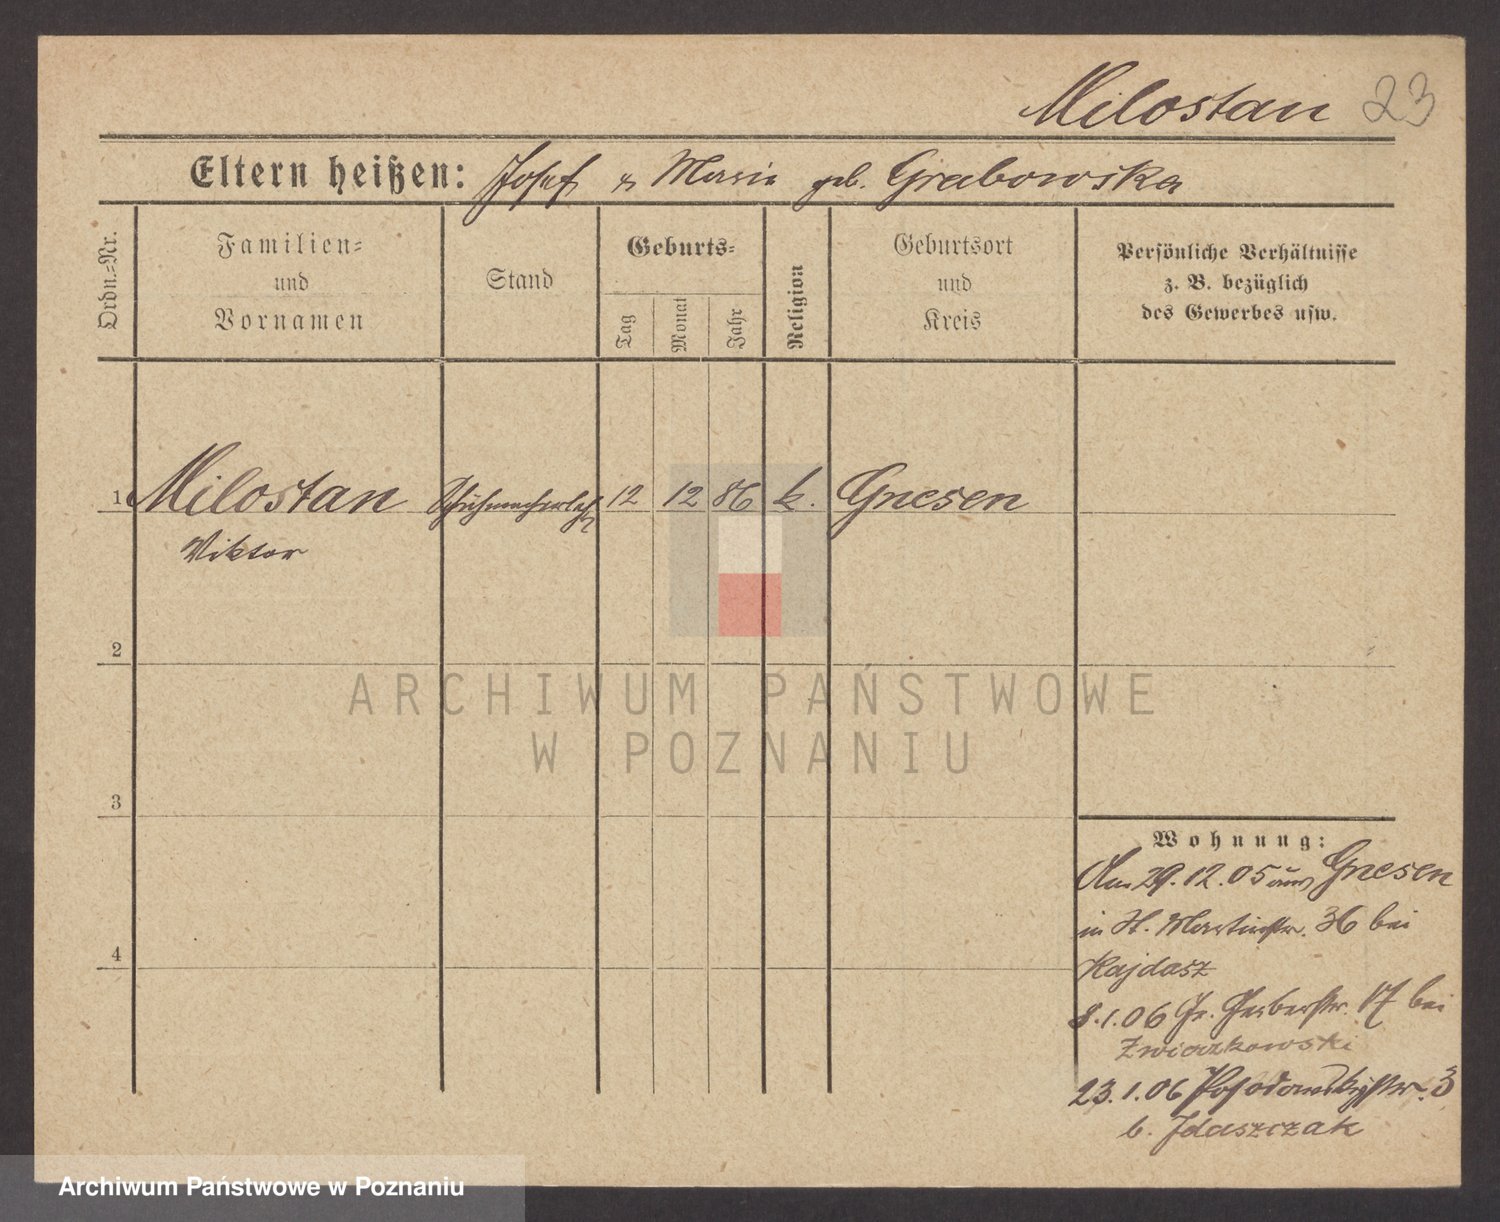 Milostan 23
Eltern heißen: Josef u Marie geb. Grabowska
Ordn.-Nr.
Familien-
und
Vornamen
Stand
Geburts-
Tag
Monat
Jahr
Religion
Geburtsort
und
Kreis
Persönliche Verhältnisse
z. B. bezüglich
des Gewerbes usw.
1 Milostan Schuhmacherlehr 12 12 86 k. Gnesen
Viktor
2
3
4
Wohnung:
Am 29.12.05 aus Gnesen
in St. Martinstr. 36 bei
Kajdasz
8.1.06 Gr. Gerberstr. 17 bei
Zwiazkowski
23.1.06 Posadowskystr. 3
b. Idaszczak
ARCHIWUM PAŃSTWOWE
W POZNANIU
Archiwum Państwowe w Poznaniu